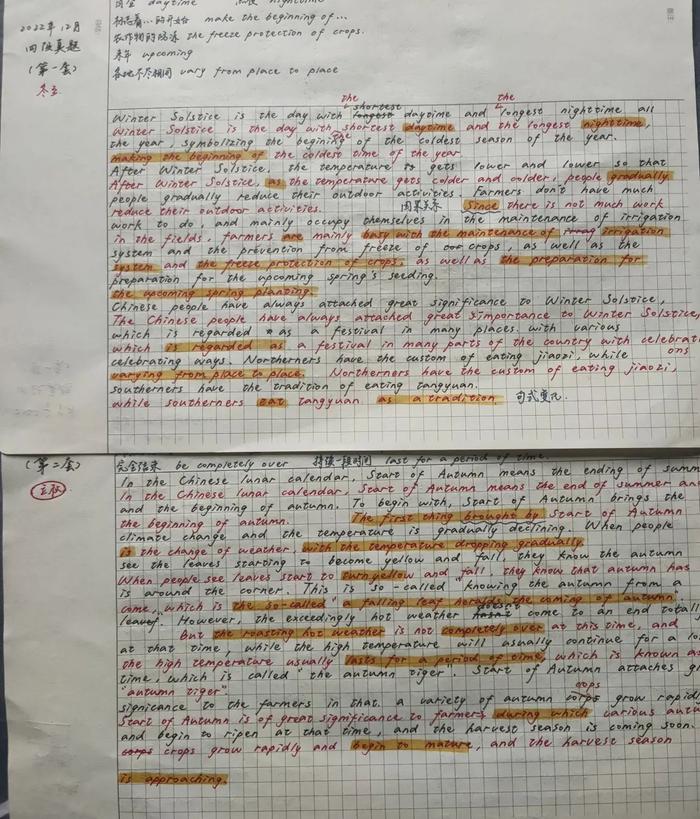 daytime
标志着…的开始 make the beginning of…
农作物的防冻 the freeze protection of crops.
来年 upcoming
各地不尽相同 vary from place to place
2022年12月
四级真题
(第一套)
冬至
the shortest the
Winter Solstice is the day with longest daytime and longest nighttime all
Winter Solstice is the day with shortest daytime and the longest nighttime,
the year, symbolizing the begining of the coldest season of the year.
making the beginning of the coldest time of the year.
After Winter Solstice, the temperature gets lower and lower so that
After Winter Solstice, as the temperature gets colder and colder, people gradually
people gradually reduce their outdoor activities. Farmers don't have much
reduce their outdoor activities. 因果关系 Since there is not much work
work to do, and mainly occupy themselves in the maintenance of irrigation
in the fields, farmers are mainly busy with the maintenance of irrigation
system and the prevention from freeze of crops, as well as the
system and the freeze protection of crops, as well as the preparation for
preparation for the upcoming spring's seeding.
the upcoming spring planting.
Chinese people have always attached great significance to Winter Solstice,
The Chinese people have always attached great simportance to Winter Solstice,
which is regarded as a festival in many places with various
which is regarded as a festival in many parts of the country with celebrati
celebrating ways. Northerners have the custom of eating jiaozi, while ons
varying from place to place. Northerners have the custom of eating jiaozi,
southerners have the tradition of eating tangyuan.
while southerners eat tangyuan as a tradition. 句式变化.
(第二套)
立秋
完全结束 be completely over 持续一段时间 last for a period of time.
In the Chinese lunar calendar, Start of Autumn means the ending of summ
In the Chinese lunar calendar, Start of Autumn means the end of summer an
and the beginning of autumn. To begin with, Start of Autumn brings the
the beginning of autumn. The first thing brought by Start of Autumn
climate change and the temperature is gradually declining. When people
is the change of weather, with the temperature dropping gradually.
see the leaves starting to become yellow and fall, they know the autumn
When people see leaves start to turn yellow and fall, they know that autumn has
is around the corner. This is so-called "knowing the autumn from a
come, which is the so-called "a falling leaf heralds the coming of autumn".
leaf. However, the exceedingly hot weather doesn't come to an end totall
But the roasting hot weather is not completely over at this time, and
at that time, while the high temperature will usually continue for a lo
the high temperature usually lasts for a period of time, which is known as
time, which is called "the autumn tiger". Start of Autumn attaches gr
"autumn tiger".
signicance to the farmers in that. a variety of autumn crops grow rapid
Start of Autumn is of great significance to farmers during which various autu
and begin to ripen at that time, and the harvest season is coming soon.
crops grow rapidly and begin to mature, and the harvest season
is approaching.